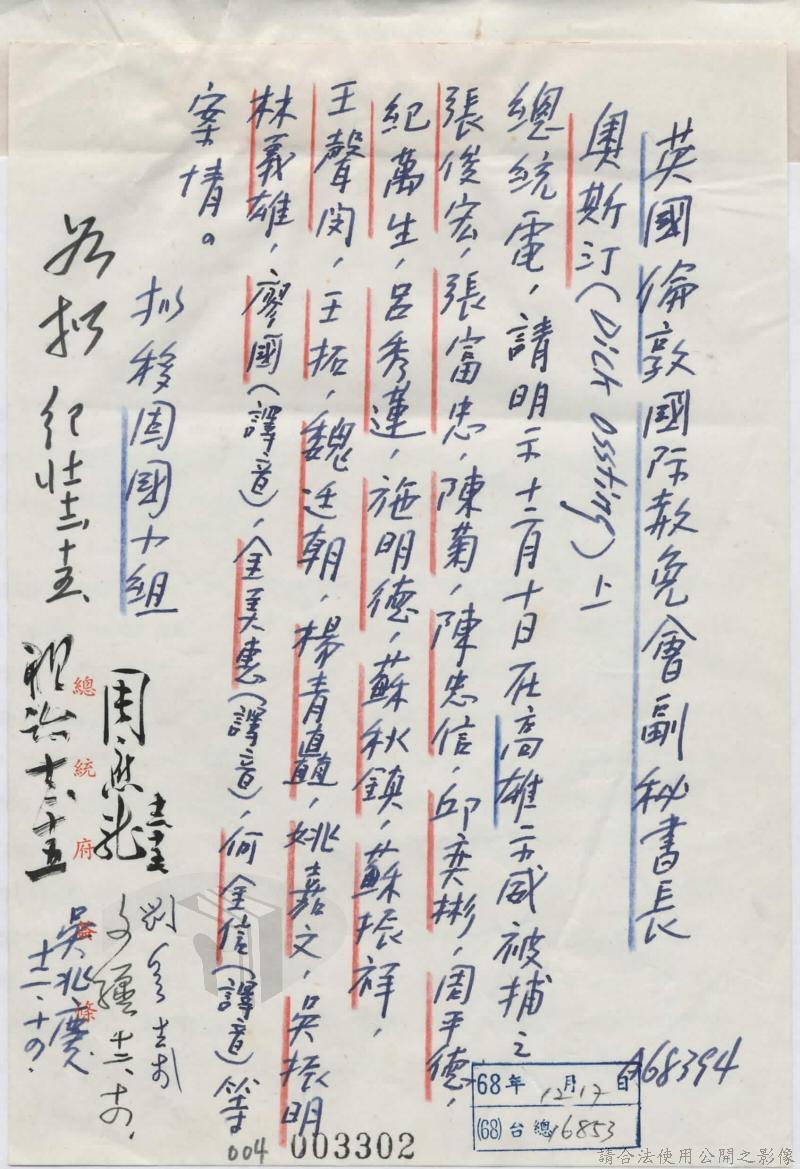 英國倫敦國际赦免會副秘書長
奧斯汀(Dick Ossting)上
總統電,請明示十二月十日在高雄示威被捕之
張俊宏,張富忠,陳菊,陳忠信,邱奕彬,周平德,
紀萬生,呂秀蓮,施明德,蘇秋鎮,蘇振祥,
王聲閔,王拓,魏廷朝,楊青矗,姚嘉文,吳振明
林義雄,廖國(譯音),金美惠(譯音),何金信(譯音)等
案情。
拟移固國小組
周應龍
吳兆慶
十二.十四.
總統府
條
A68394
68年12月17日
(68)台總16853
004
003302
請合法使用公開之影像